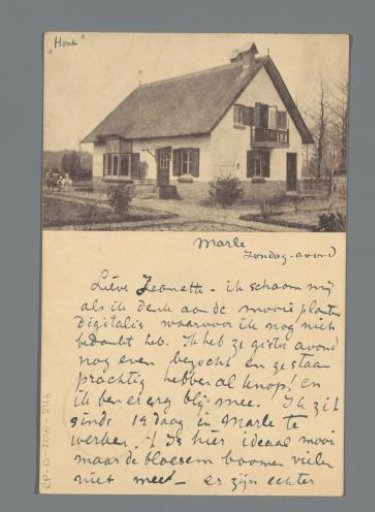 Honk
Marle
Zondag-avond
Lieve Jeanette - ik schaam mij
als ik denk aan de mooie planten
Digitalis waarvoor ik nog niet
bedankt heb. Ik heb ze gister avond
nog even bezocht en ze staan
prachtig hebben al knop! en
ik ben er erg blij mee. Ik zit
sinds 19 daag in Marle te
werken. 't Is hier ideaal mooi
maar de bloesem boomen vielen
niet mee - er zijn echter